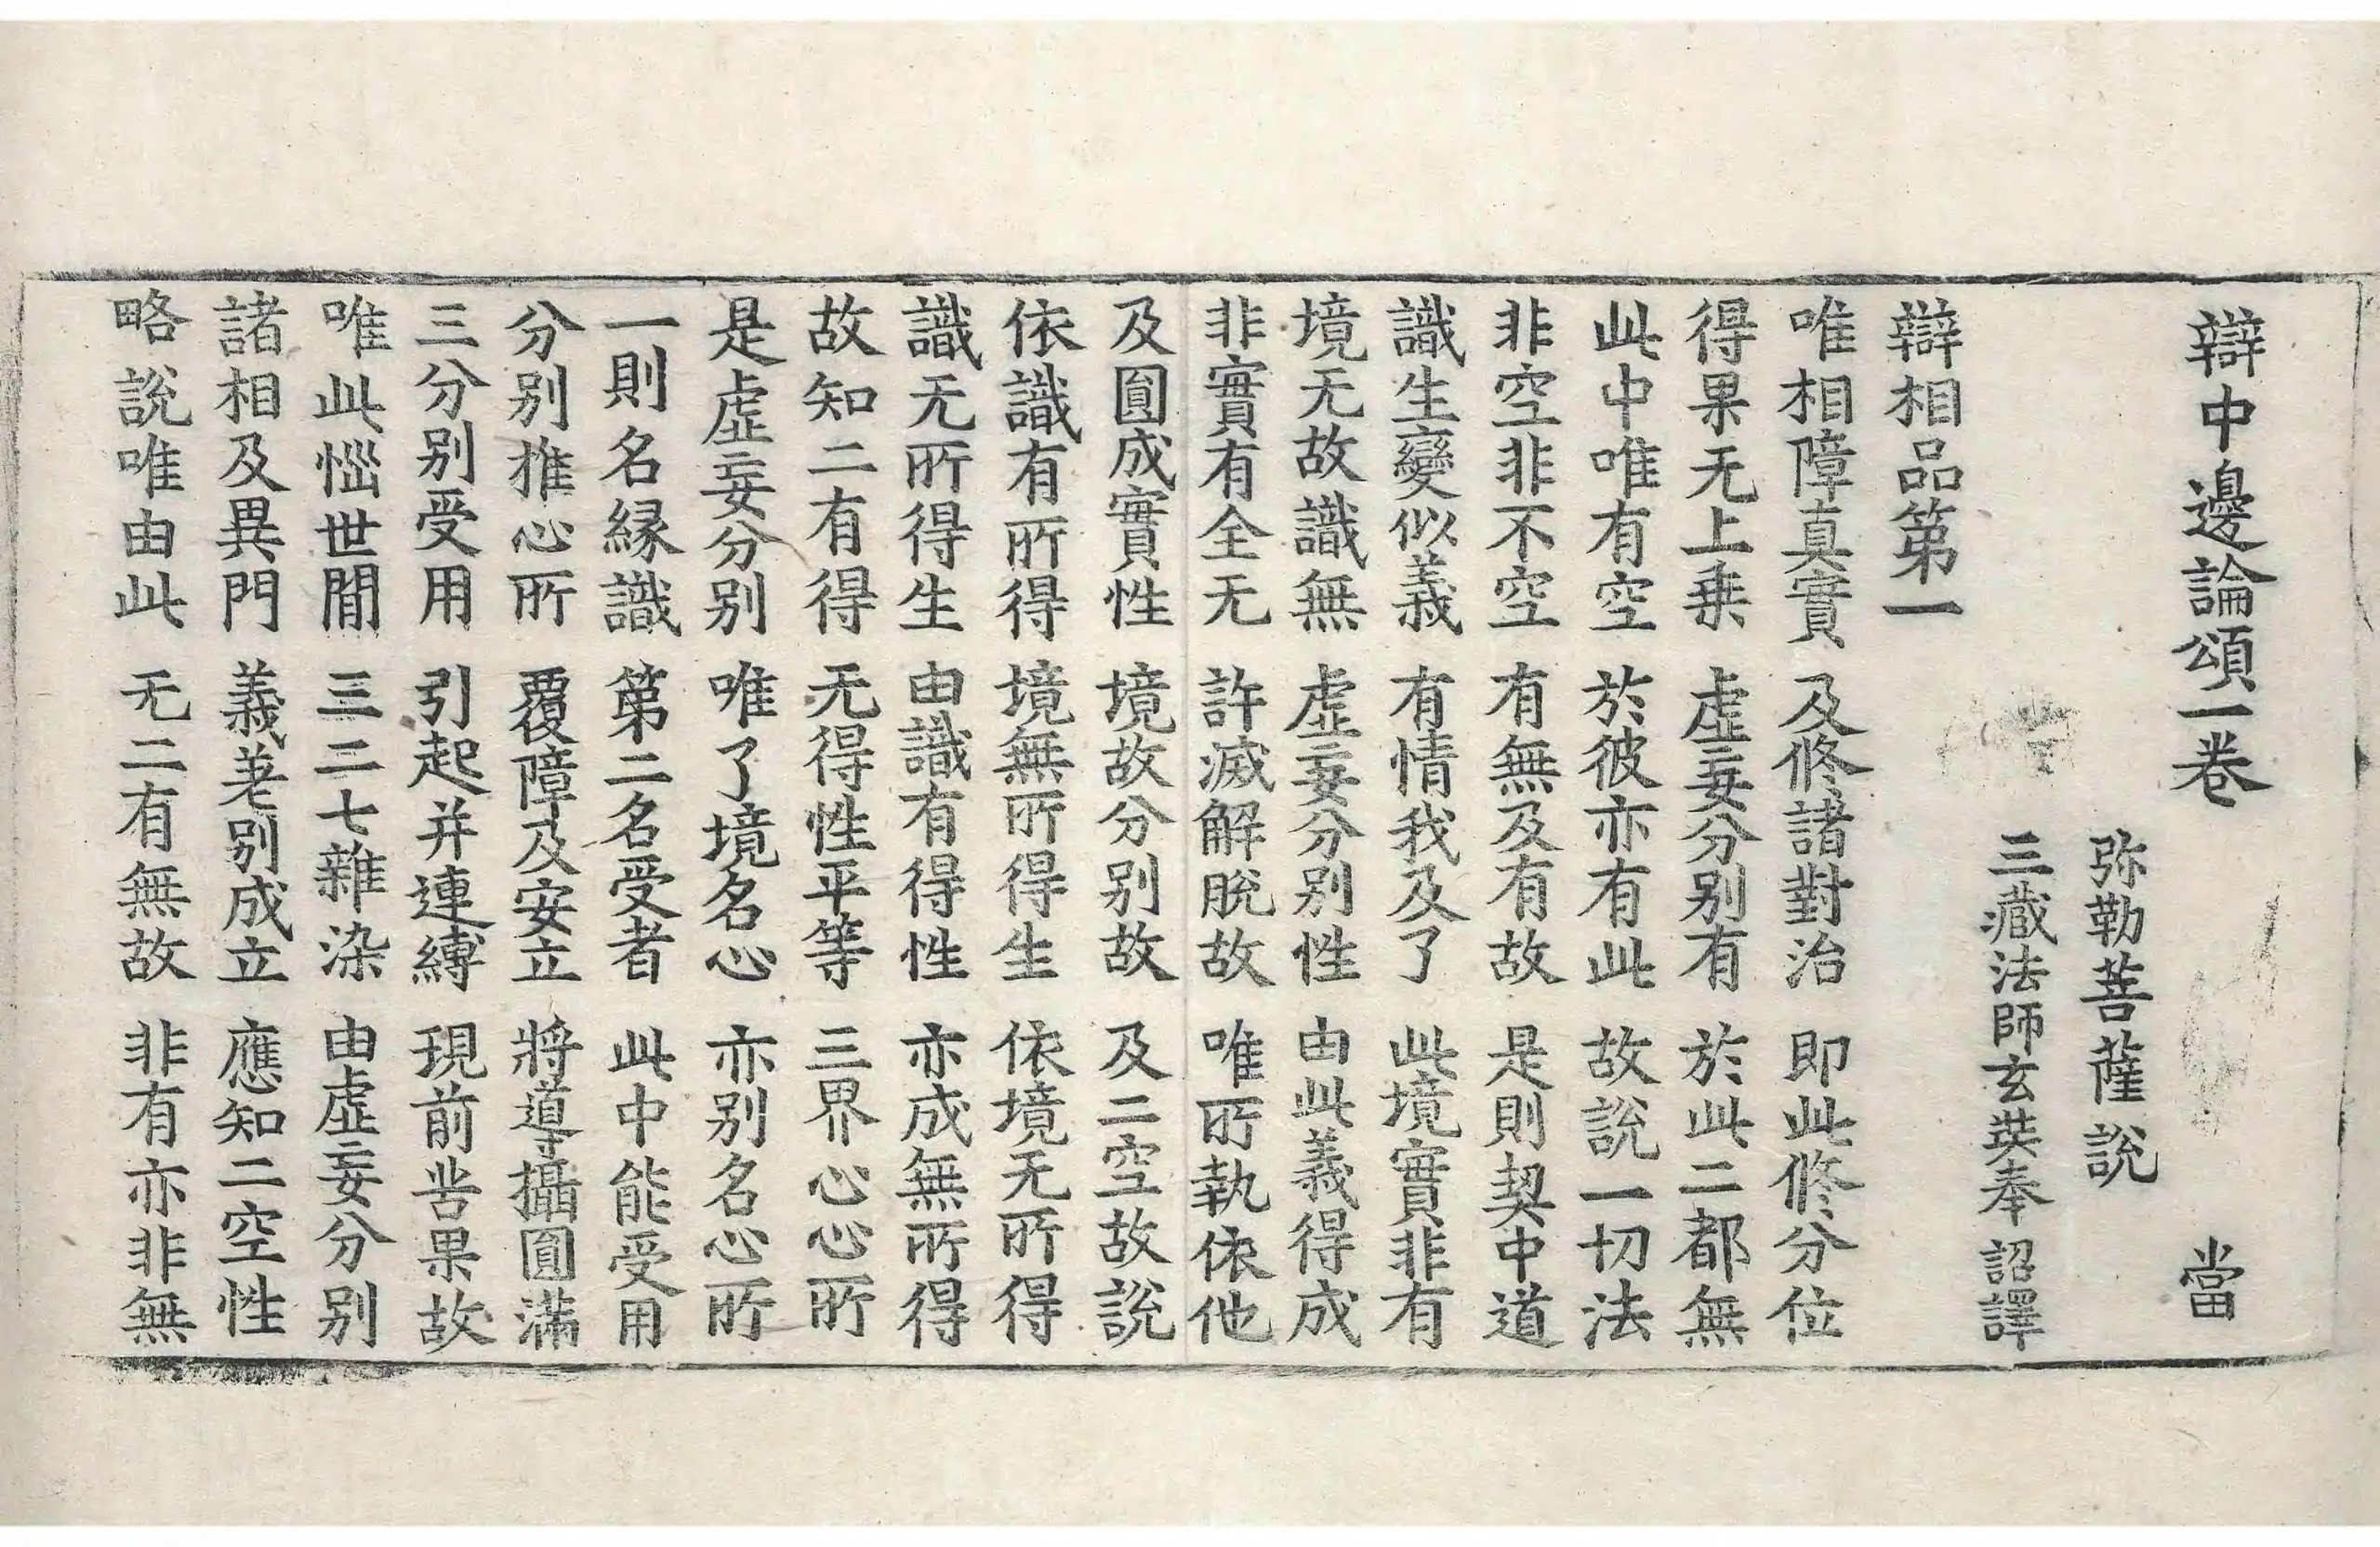 辯中邊論頌一卷 當
弥勒菩薩說
三藏法師玄奘奉 詔譯
辯相品第一
唯相障真實 及修諸對治 即此修分位
得果无上乗 虛妄分别有 於此二都無
此中唯有空 於彼亦有此 故說一切法
非空非不空 有無及有故 是則契中道
識生變似義 有情我及了 此境實非有
境无故識無 虛妄分别性 由此義得成
非實有全无 許滅解脫故 唯所執依他
及圓成實性 境故分别故 及二空故說
依識有所得 境無所得生 依境无所得
識无所得生 由識有得性 亦成無所得
故知二有得 无得性平等 三界心心所
是虛妄分别 唯了境名心 亦别名心所
一則名縁識 第二名受者 此中能受用
分别推心所 覆障及安立 將導攝圓滿
三分别受用 引起并連縛 現前苦果故
唯此惱世間 三二七雜染 由虛妄分别
諸相及異門 義差别成立 應知二空性
略說唯由此 无二有無故 非有亦非無